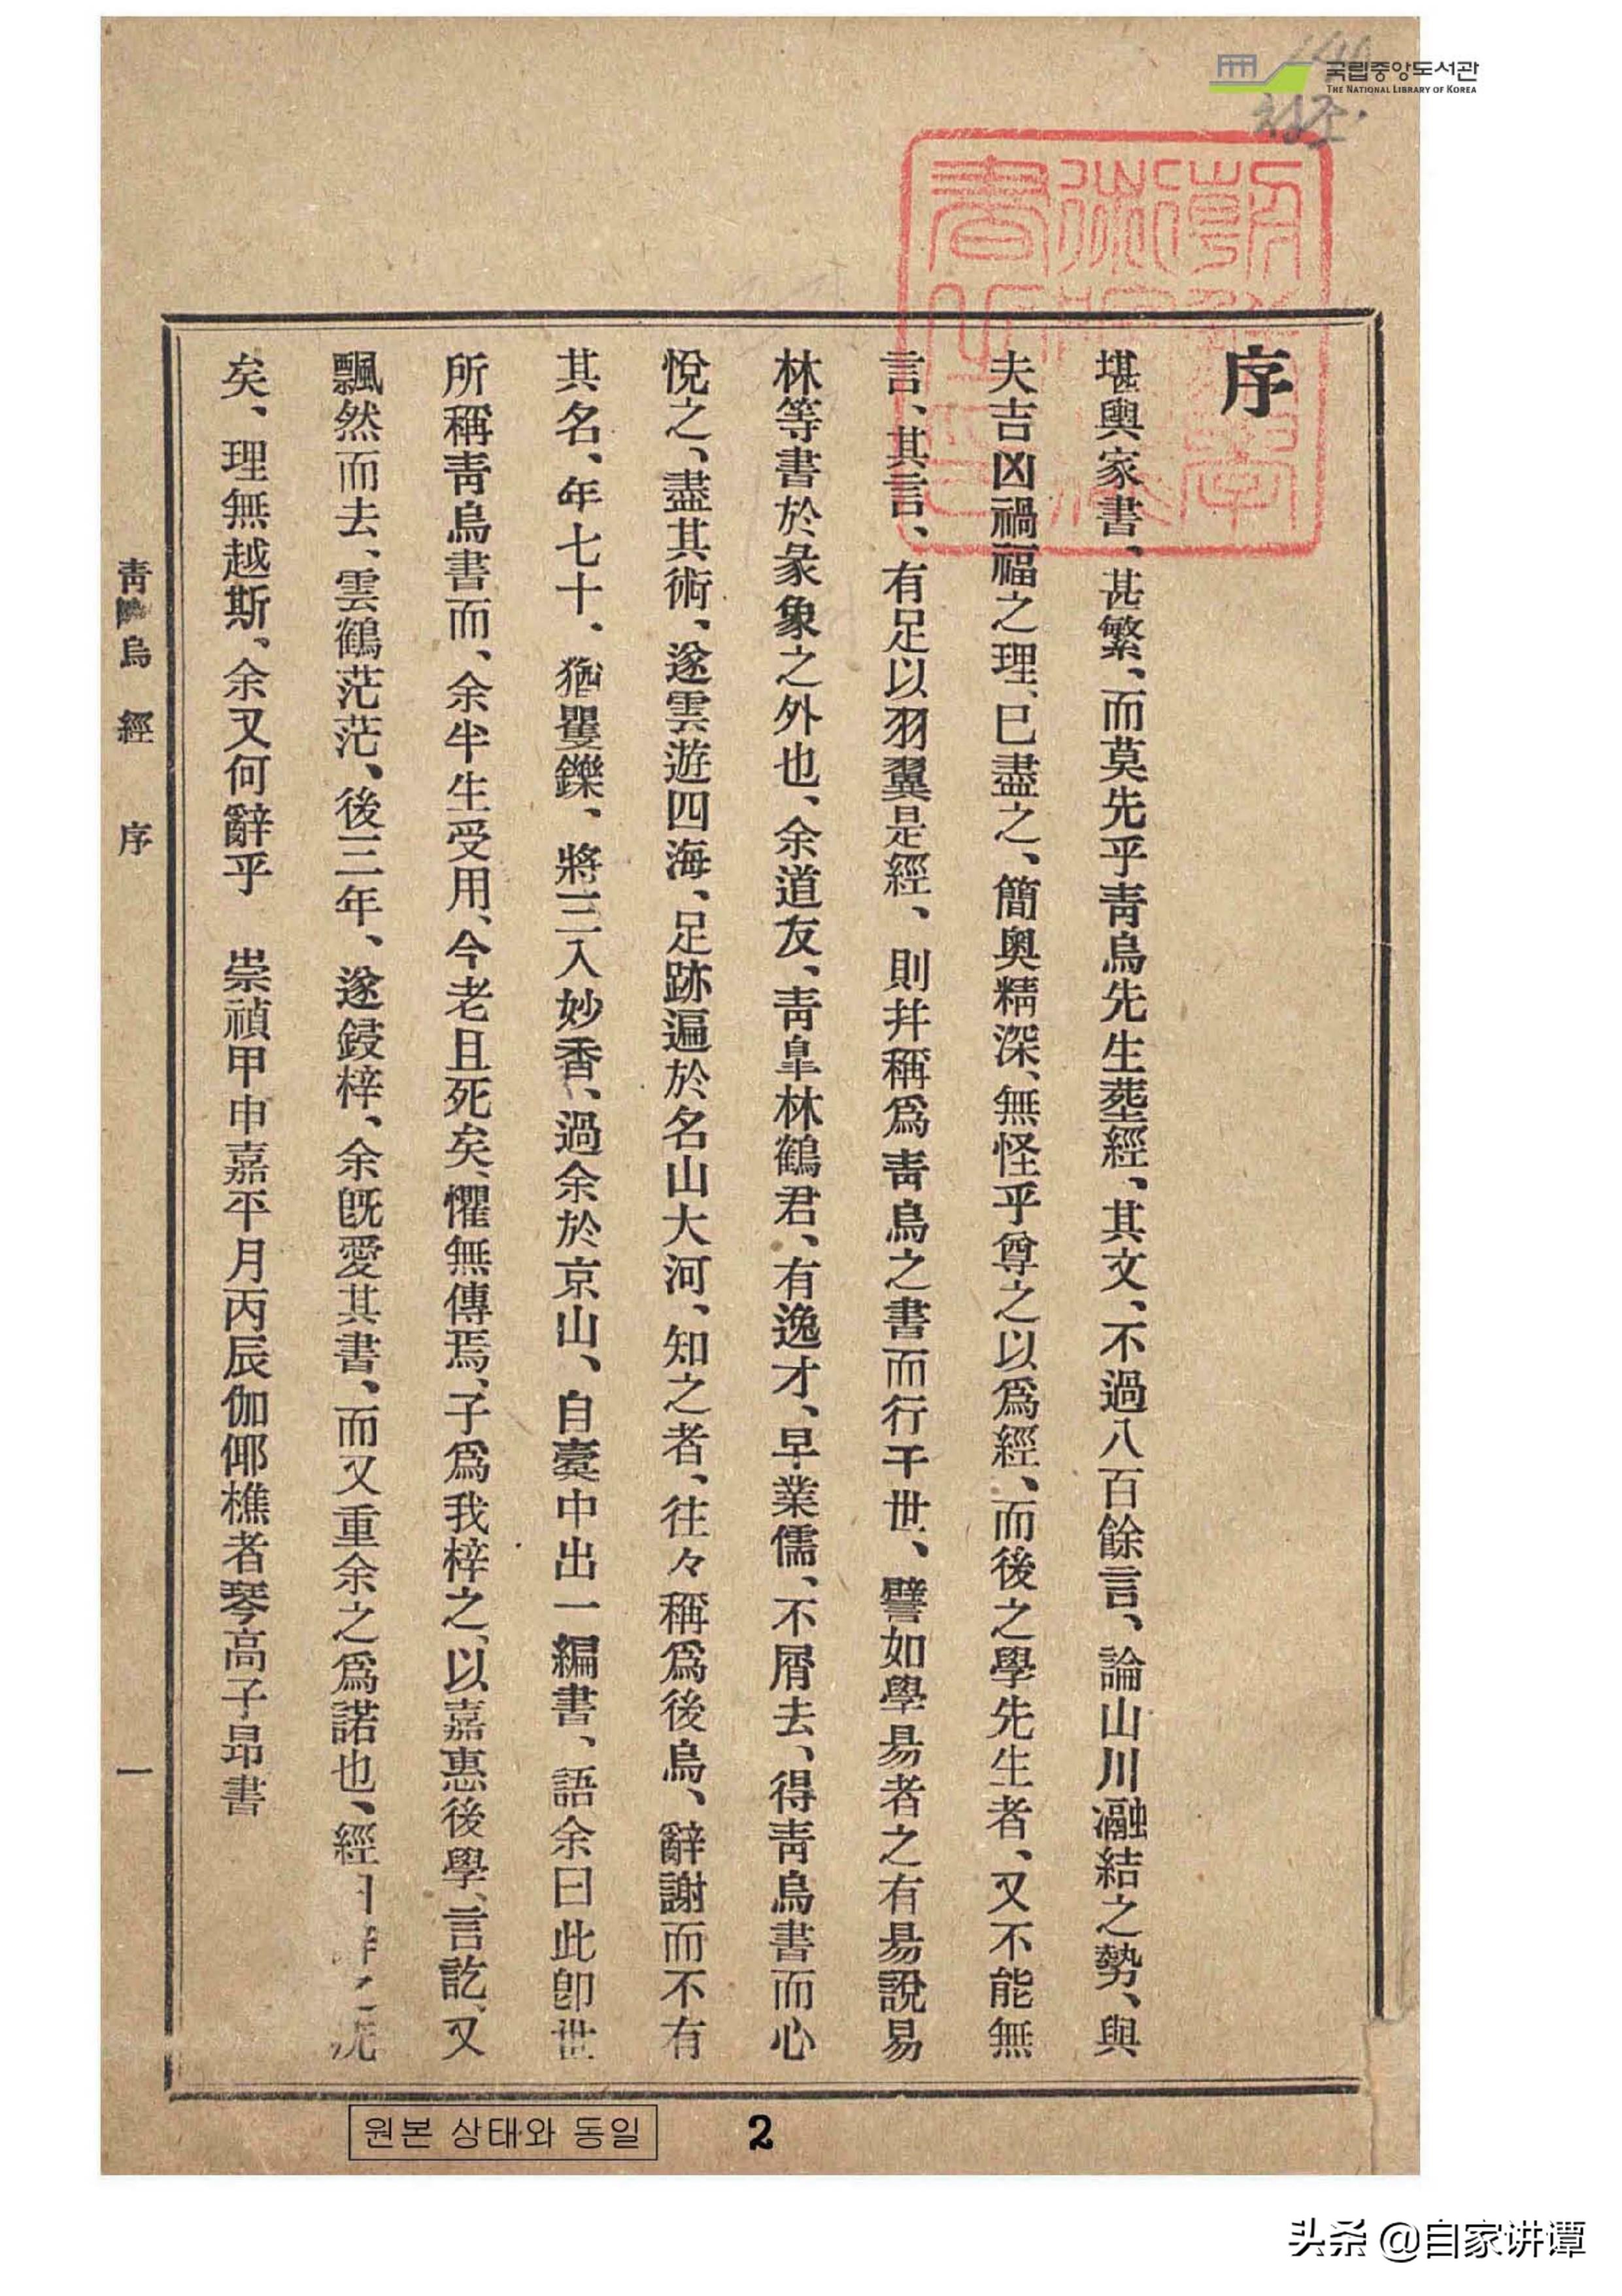 국립중앙도서관
THE NATIONAL LIBRARY OF KOREA
序
堪輿家書、甚繁、而莫先乎靑烏先生葬經、其文、不過八百餘言、論山川瀜結之勢、與
夫吉凶禍福之理、已盡之、簡奧精深、無怪乎尊之以爲經、而後之學先生者、又不能無
言、其言、有足以羽翼是經、則幷稱爲靑烏之書而行于世、譬如學易者之有易說易
林等書於彖象之外也、余道友、靑皐林鶴君、有逸才、早業儒、不屑去、得靑烏書而心
悅之、盡其術、遂雲遊四海、足跡遍於名山大河、知之者、往々稱爲後烏、辭謝而不有
其名、年七十、猶矍鑠、將三入妙香、過余於京山、自橐中出一編書、語余曰此卽世
所稱靑烏書而、余半生受用、今老且死矣、懼無傳焉、子爲我梓之、以嘉惠後學、言訖、又
飄然而去、雲鶴茫茫、後三年、遂鋟梓、余旣愛其書、而又重余之爲諾也、經
矣、理無越斯、余又何辭乎 崇禎甲申嘉平月丙辰伽倻樵者琴高子昂書
靑烏經 序 一
원본 상태와 동일
2
头条 @自家讲谭